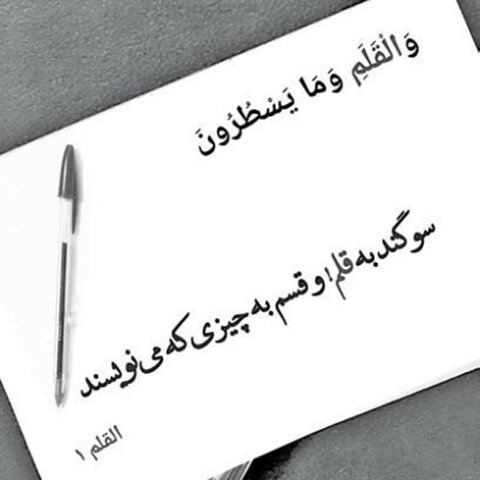 وَالْقَلَمِ وَمَا يَسْطُرُونَ
سوگند به قلم! و قسم به چیزی که می‌نویسند
القلم ۱